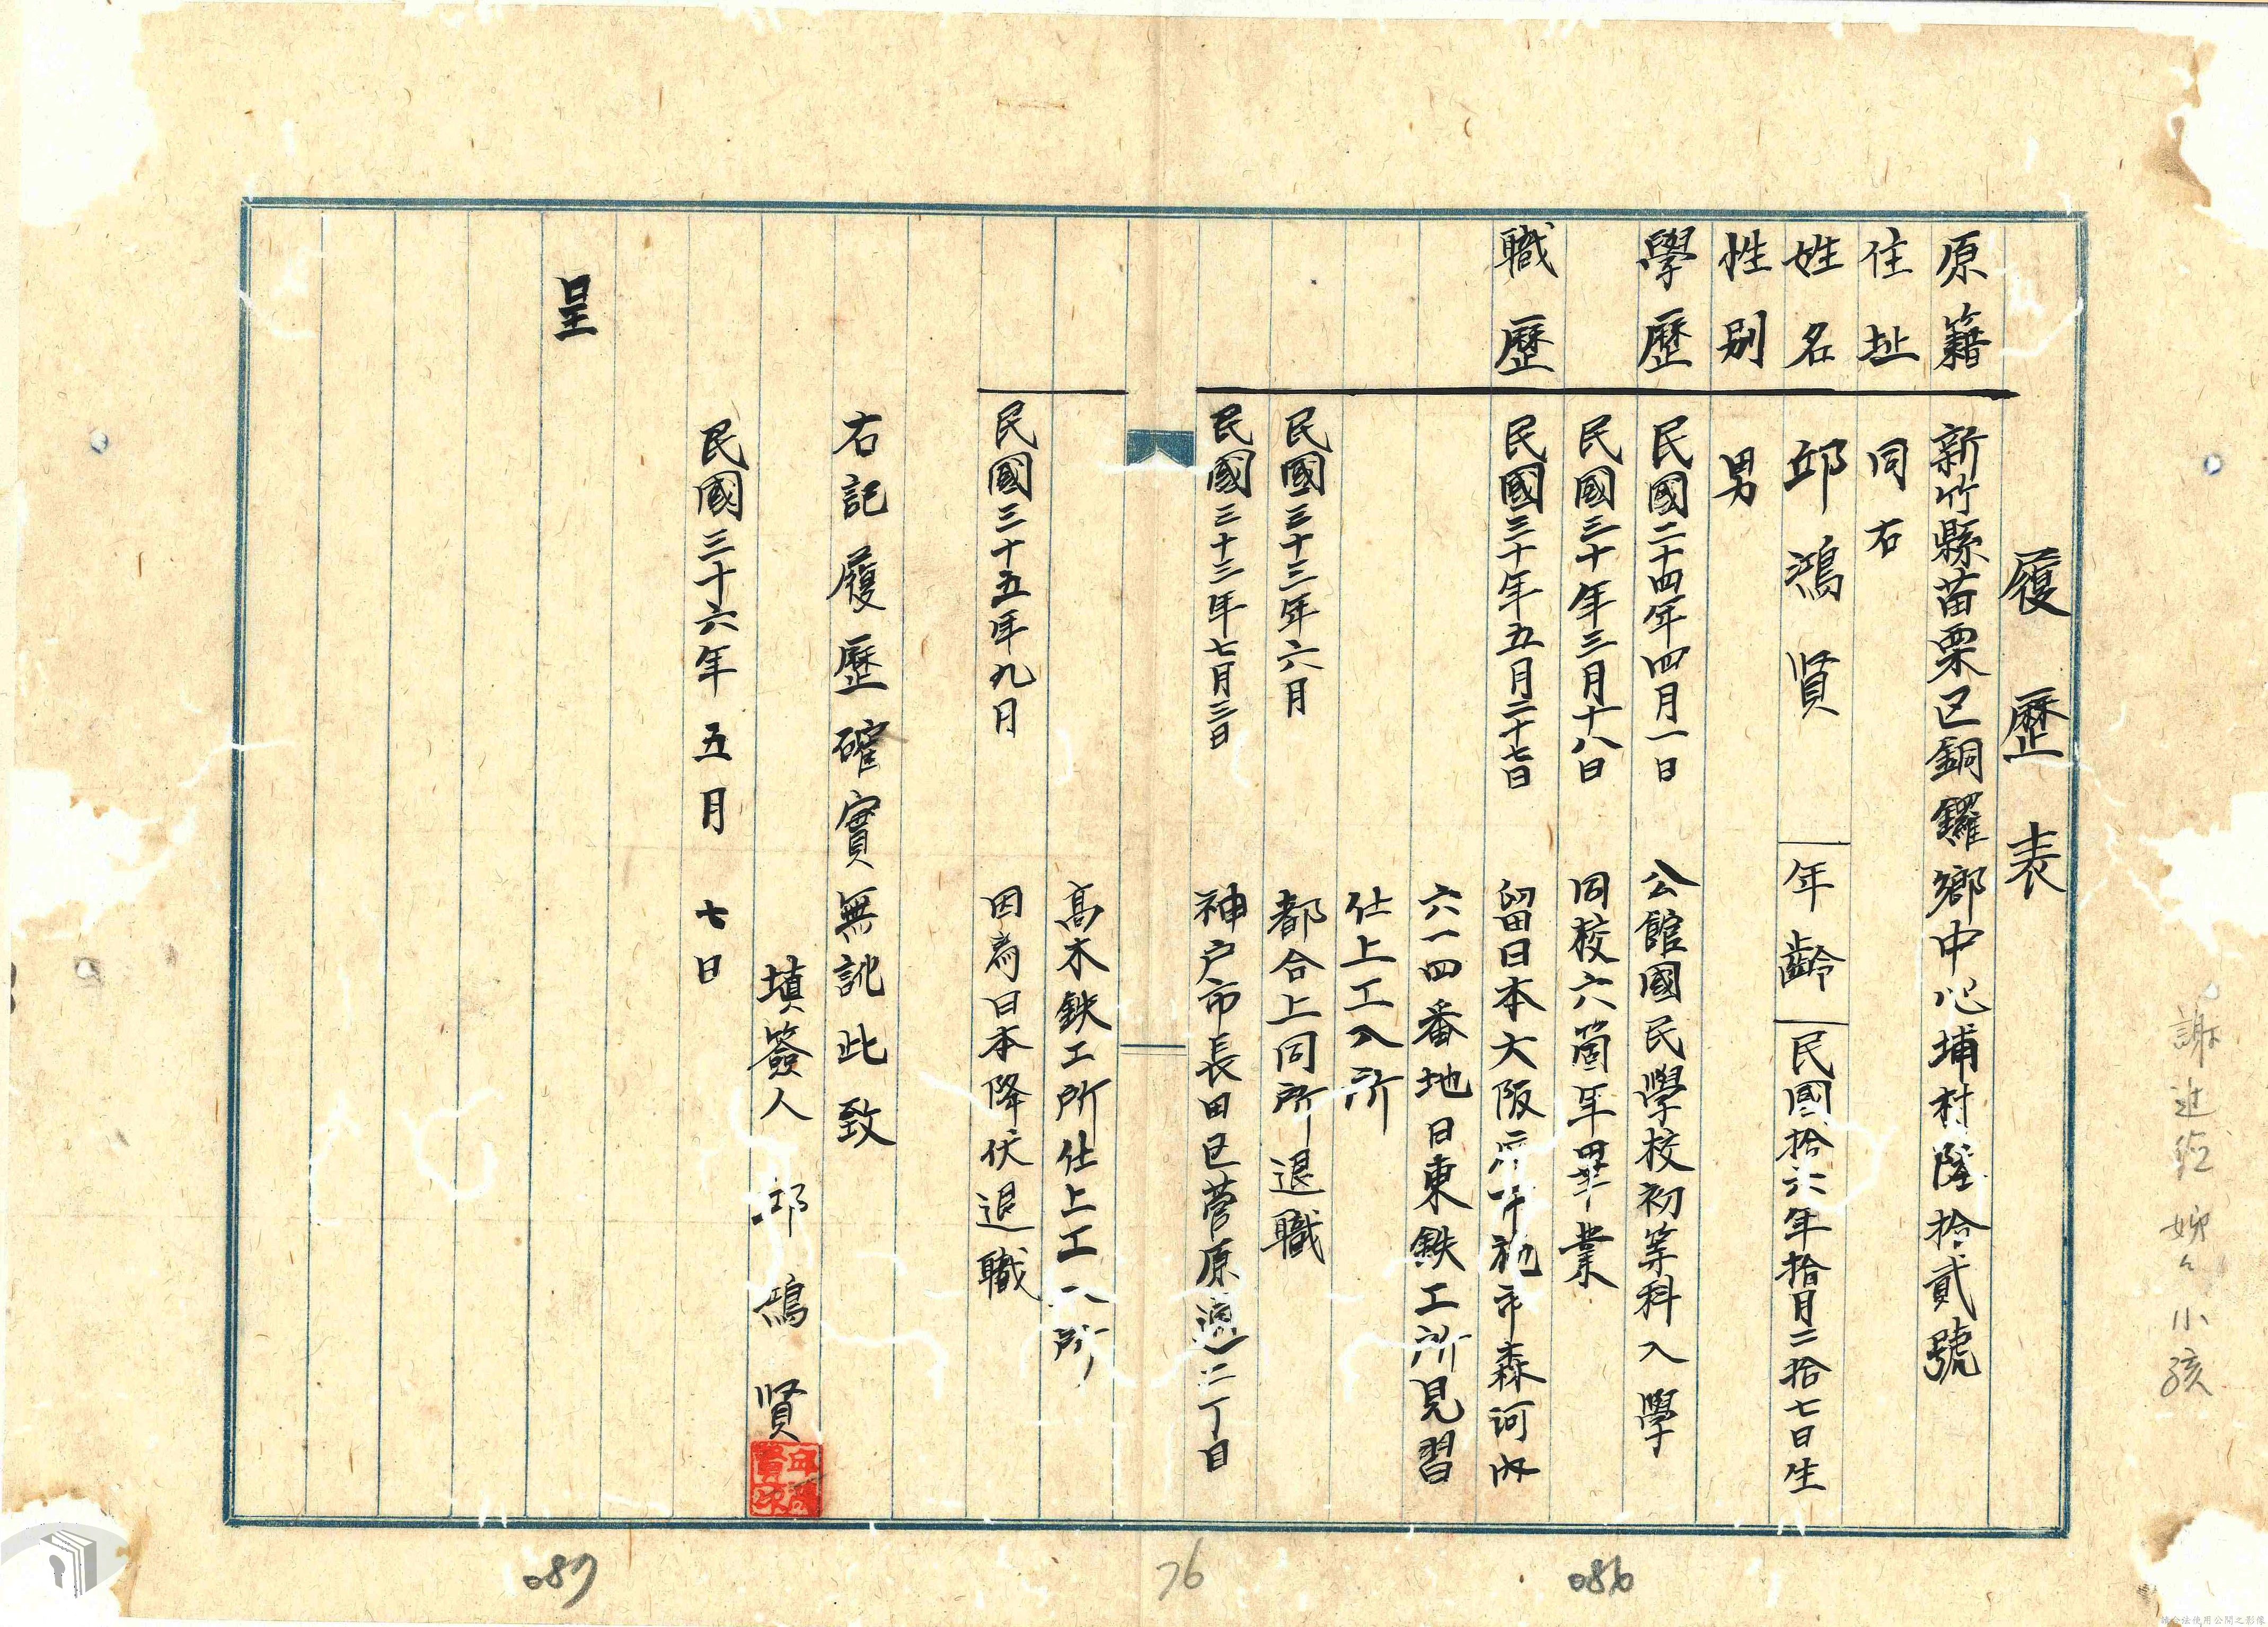 履歷表
原籍 新竹縣苗栗区銅鑼鄉中心埔村陸拾貳號
住址 同右
姓名 邱鴻賢 年齡 民國拾六年拾月二拾七日生
性別 男
學歷 民國二十四年四月一日 公館國民學校初等科入學
民國三十年三月十八日 同校六箇年畢業
職歷 民國三十年五月二十七日 留日本大阪府布施市森河内
六一四番地日東鉄工所見習
仕上工入所
民國三十三年六月 都合上同所退職
民國三十三年七月三日 神户市長田区菅原通二丁目
高木鉄工所仕上工入所
民國三十五年九月 因為日本降伏退職
右記履歷確實無訛此致
填簽人 邱鴻賢
民國三十六年五月七日
呈
小孩
086
76
087